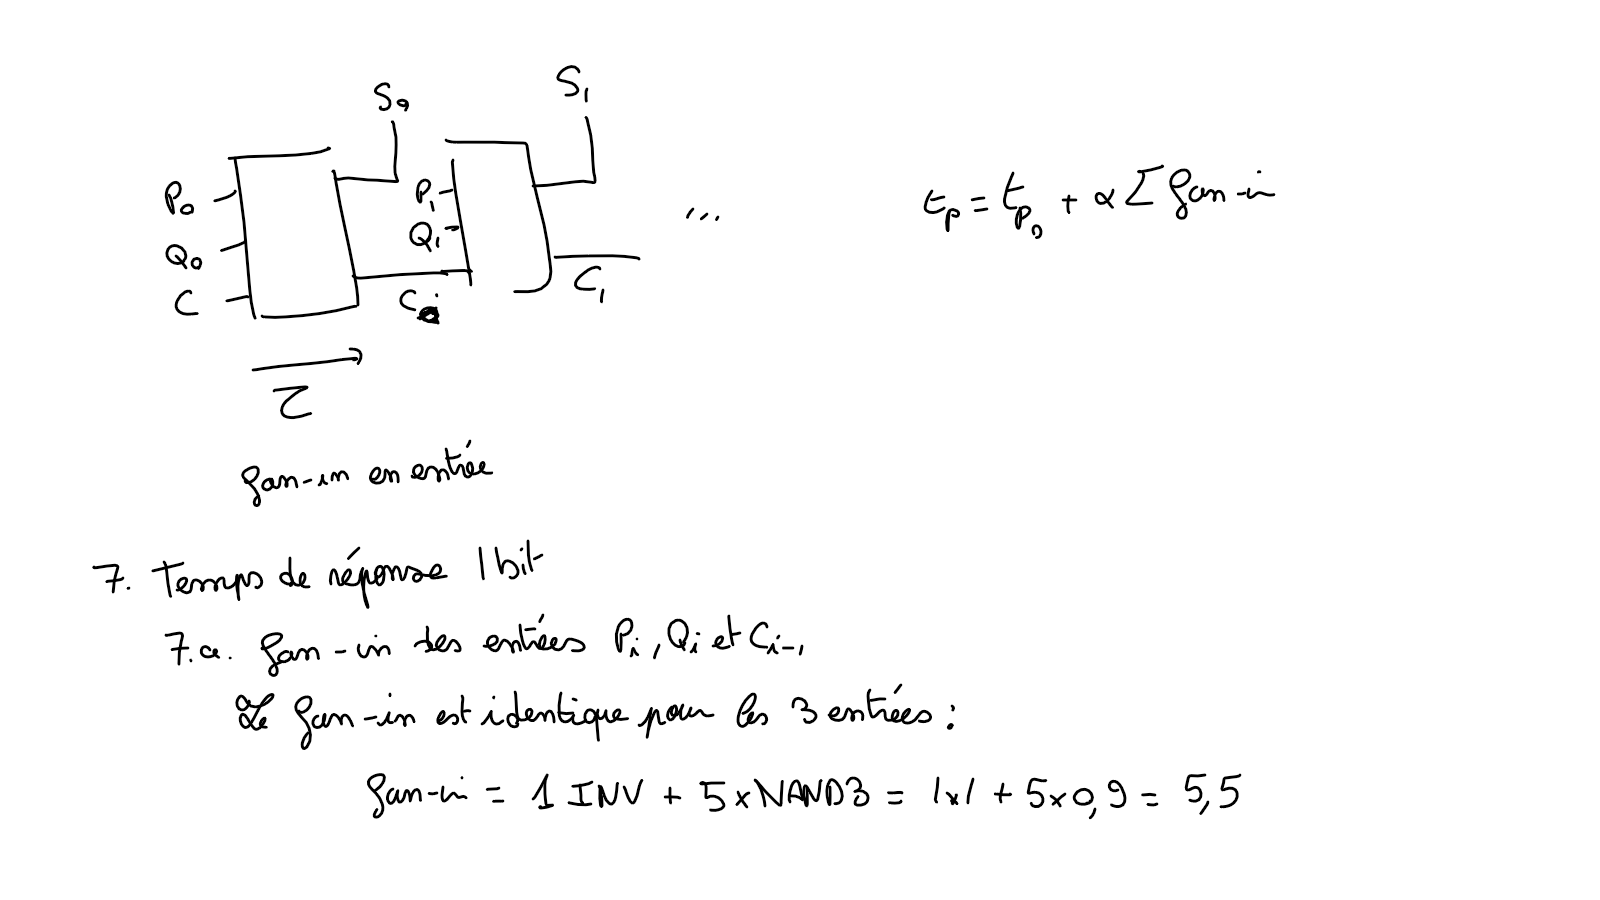 S₀
S₁
P₀
Q₀
C
P₁
Q₁
C₁
...
τ
t_p = t_p₀ + α Σ fan-in
fan-in en entrée
7. Temps de réponse 1 bit
7.a. fan-in des entrées Pᵢ, Qᵢ et Cᵢ₋₁
Le fan-in est identique pour les 3 entrées :
fan-in = 1 INV + 5×NAND3 = 1×1 + 5×0,9 = 5,5